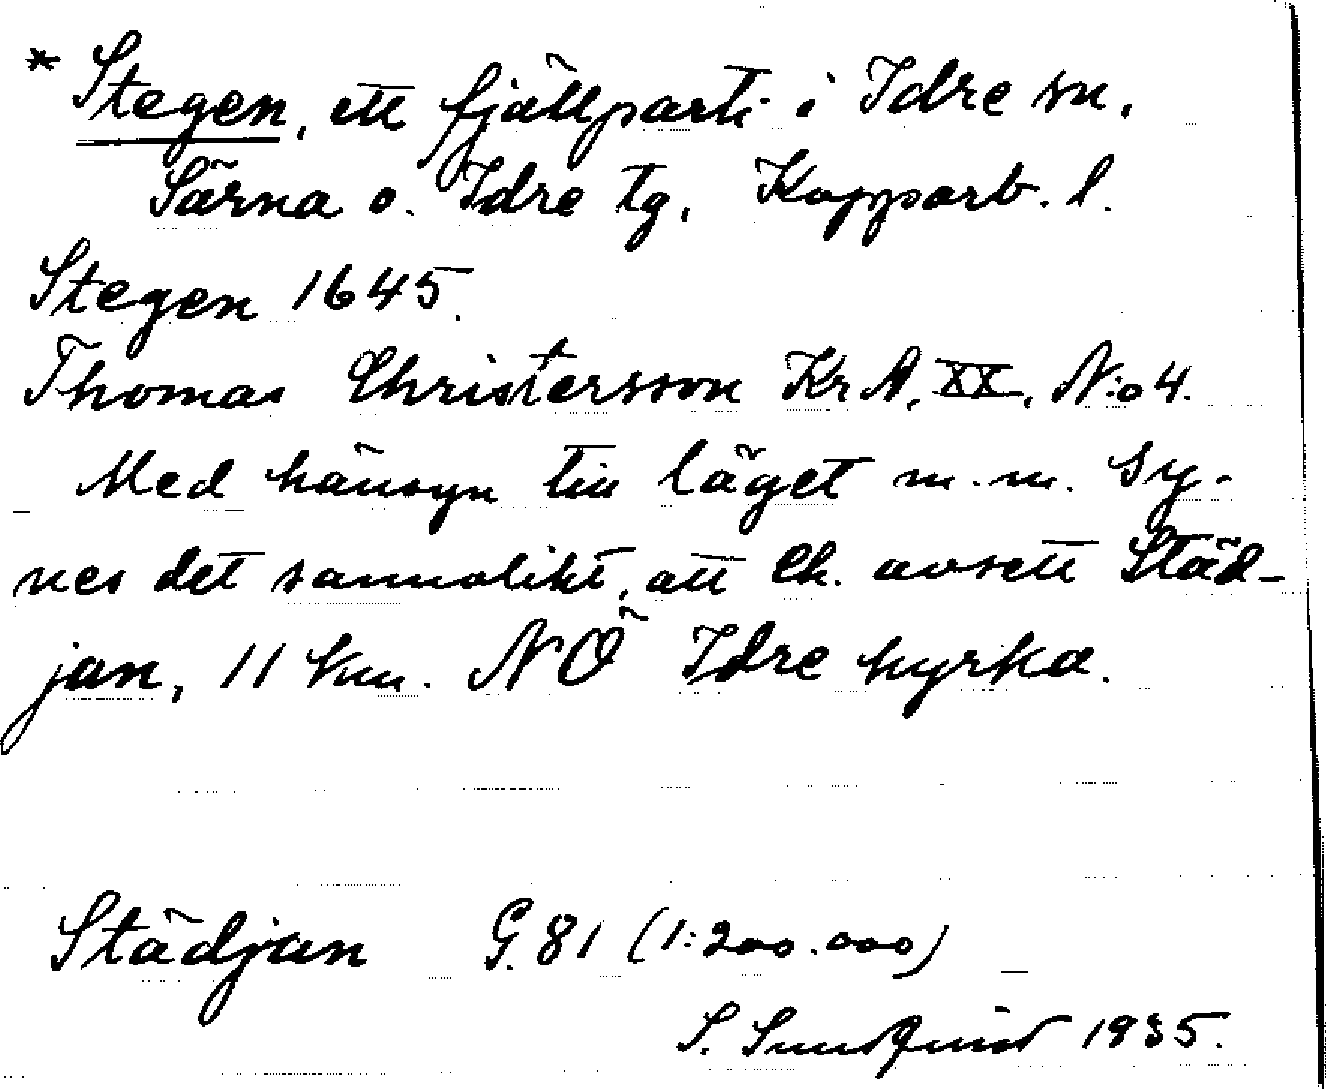 * Stegen, ett fjällparti i Idre sn,
Särna o. Idre tg, Kopparb. l.
Stegen 1645.
Thomas Christersson Kr A, XX, N:o 4.
Med hänsyn till läget m.m. sy-
nes det sannolikt, att Ch. avsett Städ-
jan, 11 km. NÖ Idre kyrka.
Städjan G. 81 (1:200.000)
S. Sundquist 1935.